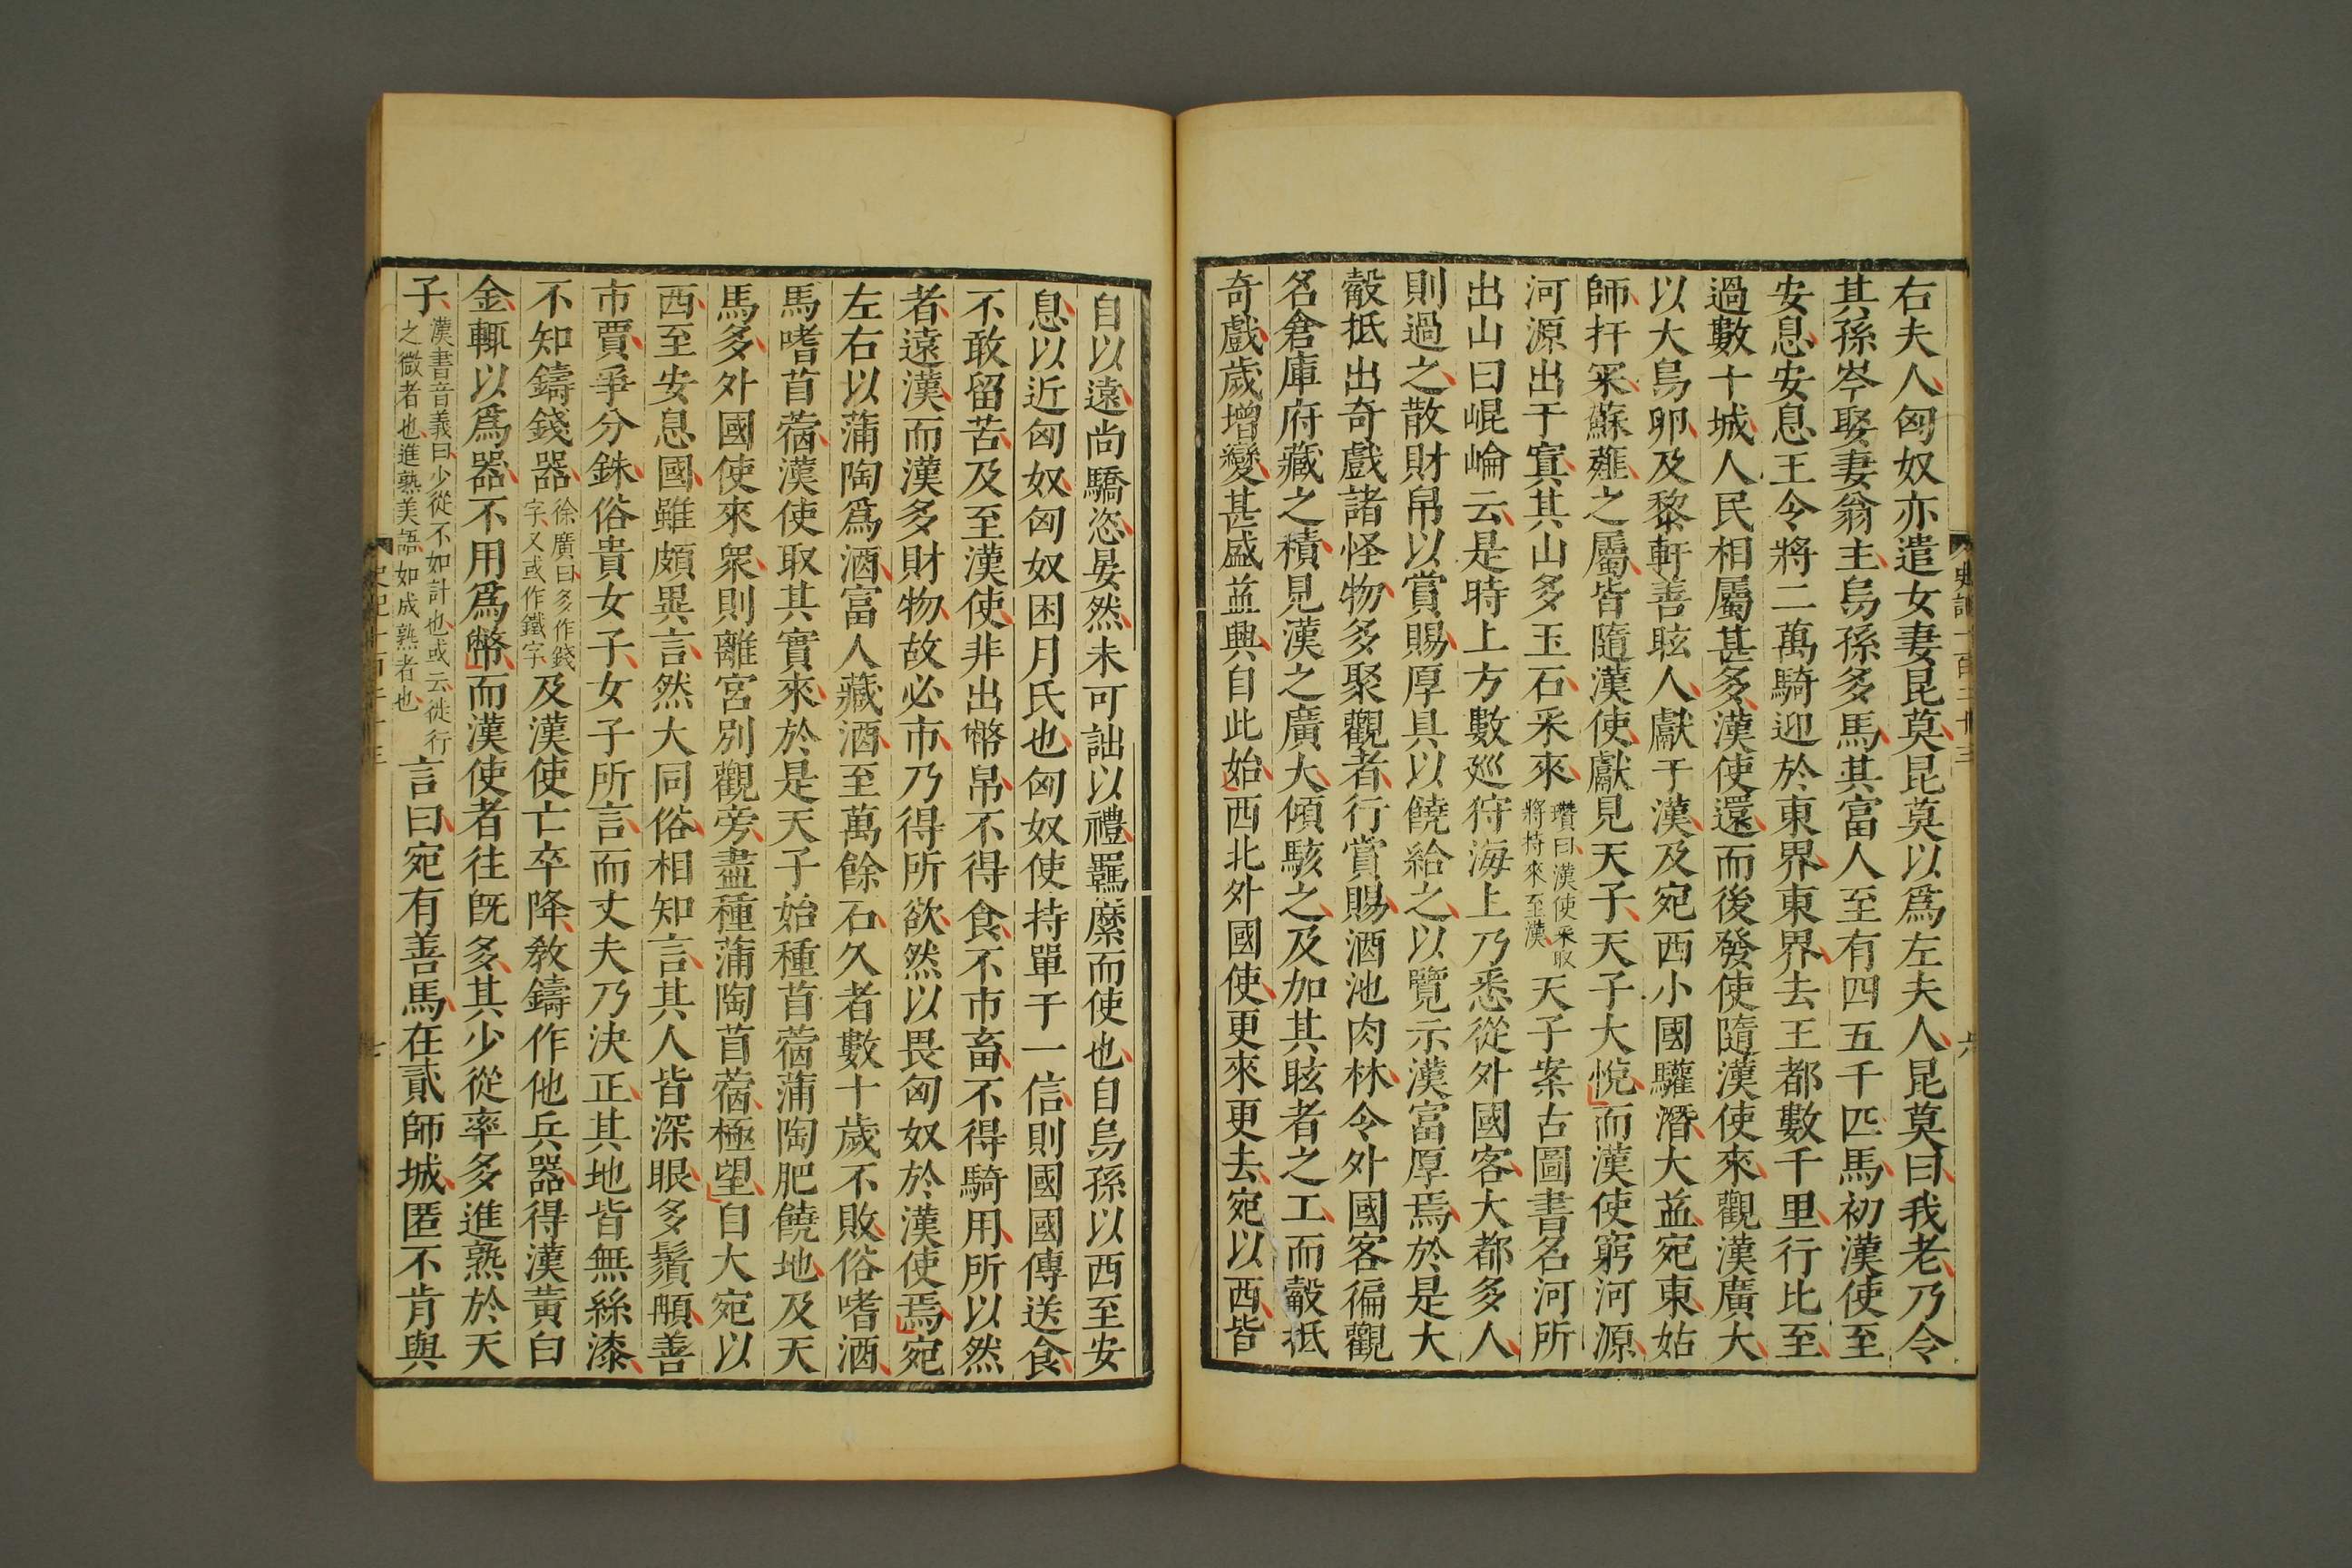 右夫人匈奴亦遣女妻昆莫昆莫以爲左夫人昆莫曰我老乃令
其孫岑娶妻翁主烏孫多馬其富人至有四五千匹馬初漢使至
安息安息王令將二萬騎迎於東界東界去王都數千里行比至
過數十城人民相屬甚多漢使還而後發使隨漢使來觀漢廣大
以大鳥卵及黎軒善眩人獻于漢及宛西小國驩潛大益宛東姑
師扜罙蘇薤之屬皆隨漢使獻見天子天子大悅而漢使窮河源
河源出于寘其山多玉石采來
瓚曰漢使采取
將持來至漢
天子案古圖書名河所
出山曰崐崘云是時上方數廵狩海上乃悉從外國客大都多人
則過之散財帛以賞賜厚具以饒給之以覽示漢富厚焉於是大
觳抵出奇戲諸怪物多聚觀者行賞賜酒池肉林令外國客徧觀
名倉庫府藏之積見漢之廣大傾駭之及加其眩者之工而觳抵
奇戲歲增變甚盛益興自此始西北外國使更來更去宛以西皆
史記一百二十三
六
自以遠尚驕恣晏然未可詘以禮羈縻而使也自烏孫以西至安
息以近匈奴匈奴困月氏也匈奴使持單于一信則國國傳送食
不敢留苦及至漢使非出幣帛不得食不市畜不得騎用所以然
者遠漢而漢多財物故必市乃得所欲然以畏匈奴於漢使焉宛
左右以蒲陶爲酒富人藏酒至萬餘石久者數十歲不敗俗嗜酒
馬嗜苜蓿漢使取其實來於是天子始種苜蓿蒲陶肥饒地及天
馬多外國使來衆則離宮別觀旁盡種蒲陶苜蓿極望自大宛以
西至安息國雖頗異言然大同俗相知言其人皆深眼多鬚䫇善
市賈爭分銖俗貴女子女子所言而丈夫乃決正其地皆無絲漆
不知鑄錢器
徐廣曰多作錢
字又或作鐵字
及漢使亡卒降教鑄作他兵器得漢黃白
金輒以爲器不用爲幣而漢使者往旣多其少從率多進熟於天
子
漢書音義曰少從不如計也或云從行
之微者也進熟美語如成熟者也
言曰宛有善馬在貳師城匿不肯與
史記一百二十三
七